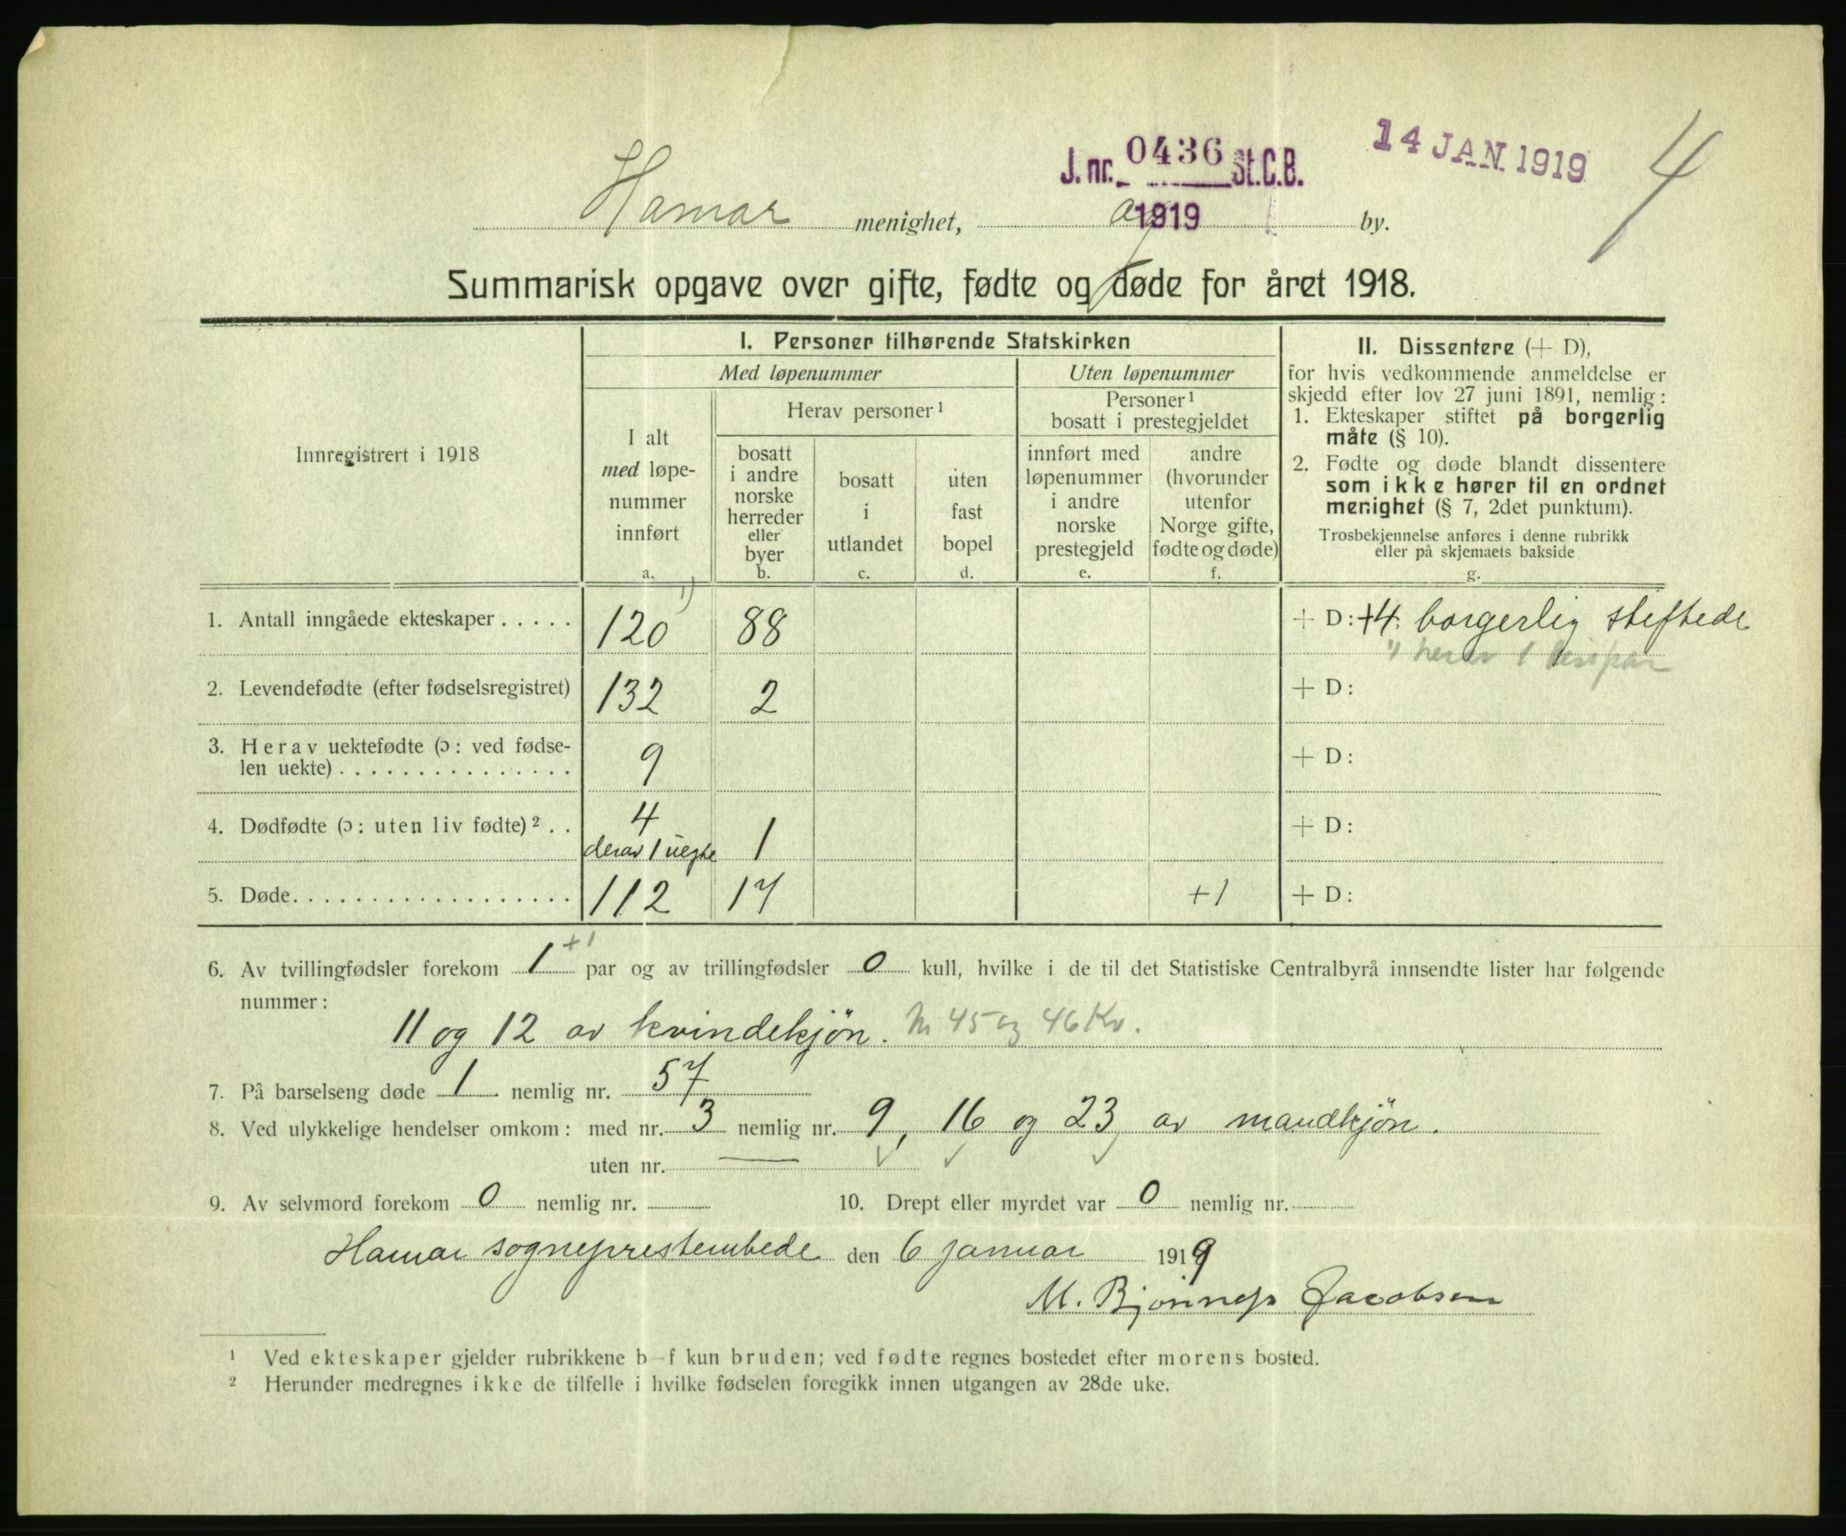 14 JAN. 1919
4
J. nr. 0436 St.C.B.
1919
Hamar menighet, by.
Summarisk opgave over gifte, fødte og døde for året 1918.
Innregistrert i 1918
I. Personer tilhørende Statskirken
Med løpenummer
Uten løpenummer
I alt
med løpe-
nummer
innført
a.
Herav personer ¹
bosatt
i andre
norske
herreder
eller
byer
b.
bosatt
i
utlandet
c.
uten
fast
bopel
d.
Personer ¹
bosatt i prestegjeldet
innført med
løpenummer
i andre
norske
prestegjeld
e.
andre
(hvorunder
utenfor
Norge gifte,
fødte og døde)
f.
II. Dissentere (+ D),
for hvis vedkommende anmeldelse er
skjedd efter lov 27 juni 1891, nemlig:
1. Ekteskaper stiftet på borgerlig
måte (§ 10).
2. Fødte og døde blandt dissentere
som ikke hører til en ordnet
menighet (§ 7, 2det punktum).
Trosbekjennelse anføres i denne rubrikk
eller på skjemaets bakside
g.
1. Antall inngåede ekteskaper . . . . . 120 ¹⁾ 88 + D: +4. borgerlig stiftede
herav 1
2. Levendefødte (efter fødselsregistret) 132 2 + D:
3. Herav uektefødte (ɔ: ved fødse-
len uekte) . . . . . . . . . . . . . . . 9 + D:
4. Dødfødte (ɔ: uten liv fødte) ² . . 4 1 + D:
derav 1 uegte
5. Døde. . . . . . . . . . . . . . . . . . . 112 17 +1 + D:
6. Av tvillingfødsler forekom 1 +1 par og av trillingfødsler 0 kull, hvilke i de til det Statistiske Centralbyrå innsendte lister har følgende
nummer:
11 og 12 av kvindekjøn. Nr 45 og 46 Kv.
7. På barselseng døde 1 nemlig nr. 57
8. Ved ulykkelige hendelser omkom: med nr. 3 nemlig nr. 9, 16 og 23, av mandkjøn.
uten nr. —
9. Av selvmord forekom 0 nemlig nr. 10. Drept eller myrdet var 0 nemlig nr.
Hamar sogneprestembede den 6 januar 1919
M. Bjönness Jacobsen
¹ Ved ekteskaper gjelder rubrikkene b—f kun bruden; ved fødte regnes bostedet efter morens bosted.
² Herunder medregnes ikke de tilfelle i hvilke fødselen foregikk innen utgangen av 28de uke.